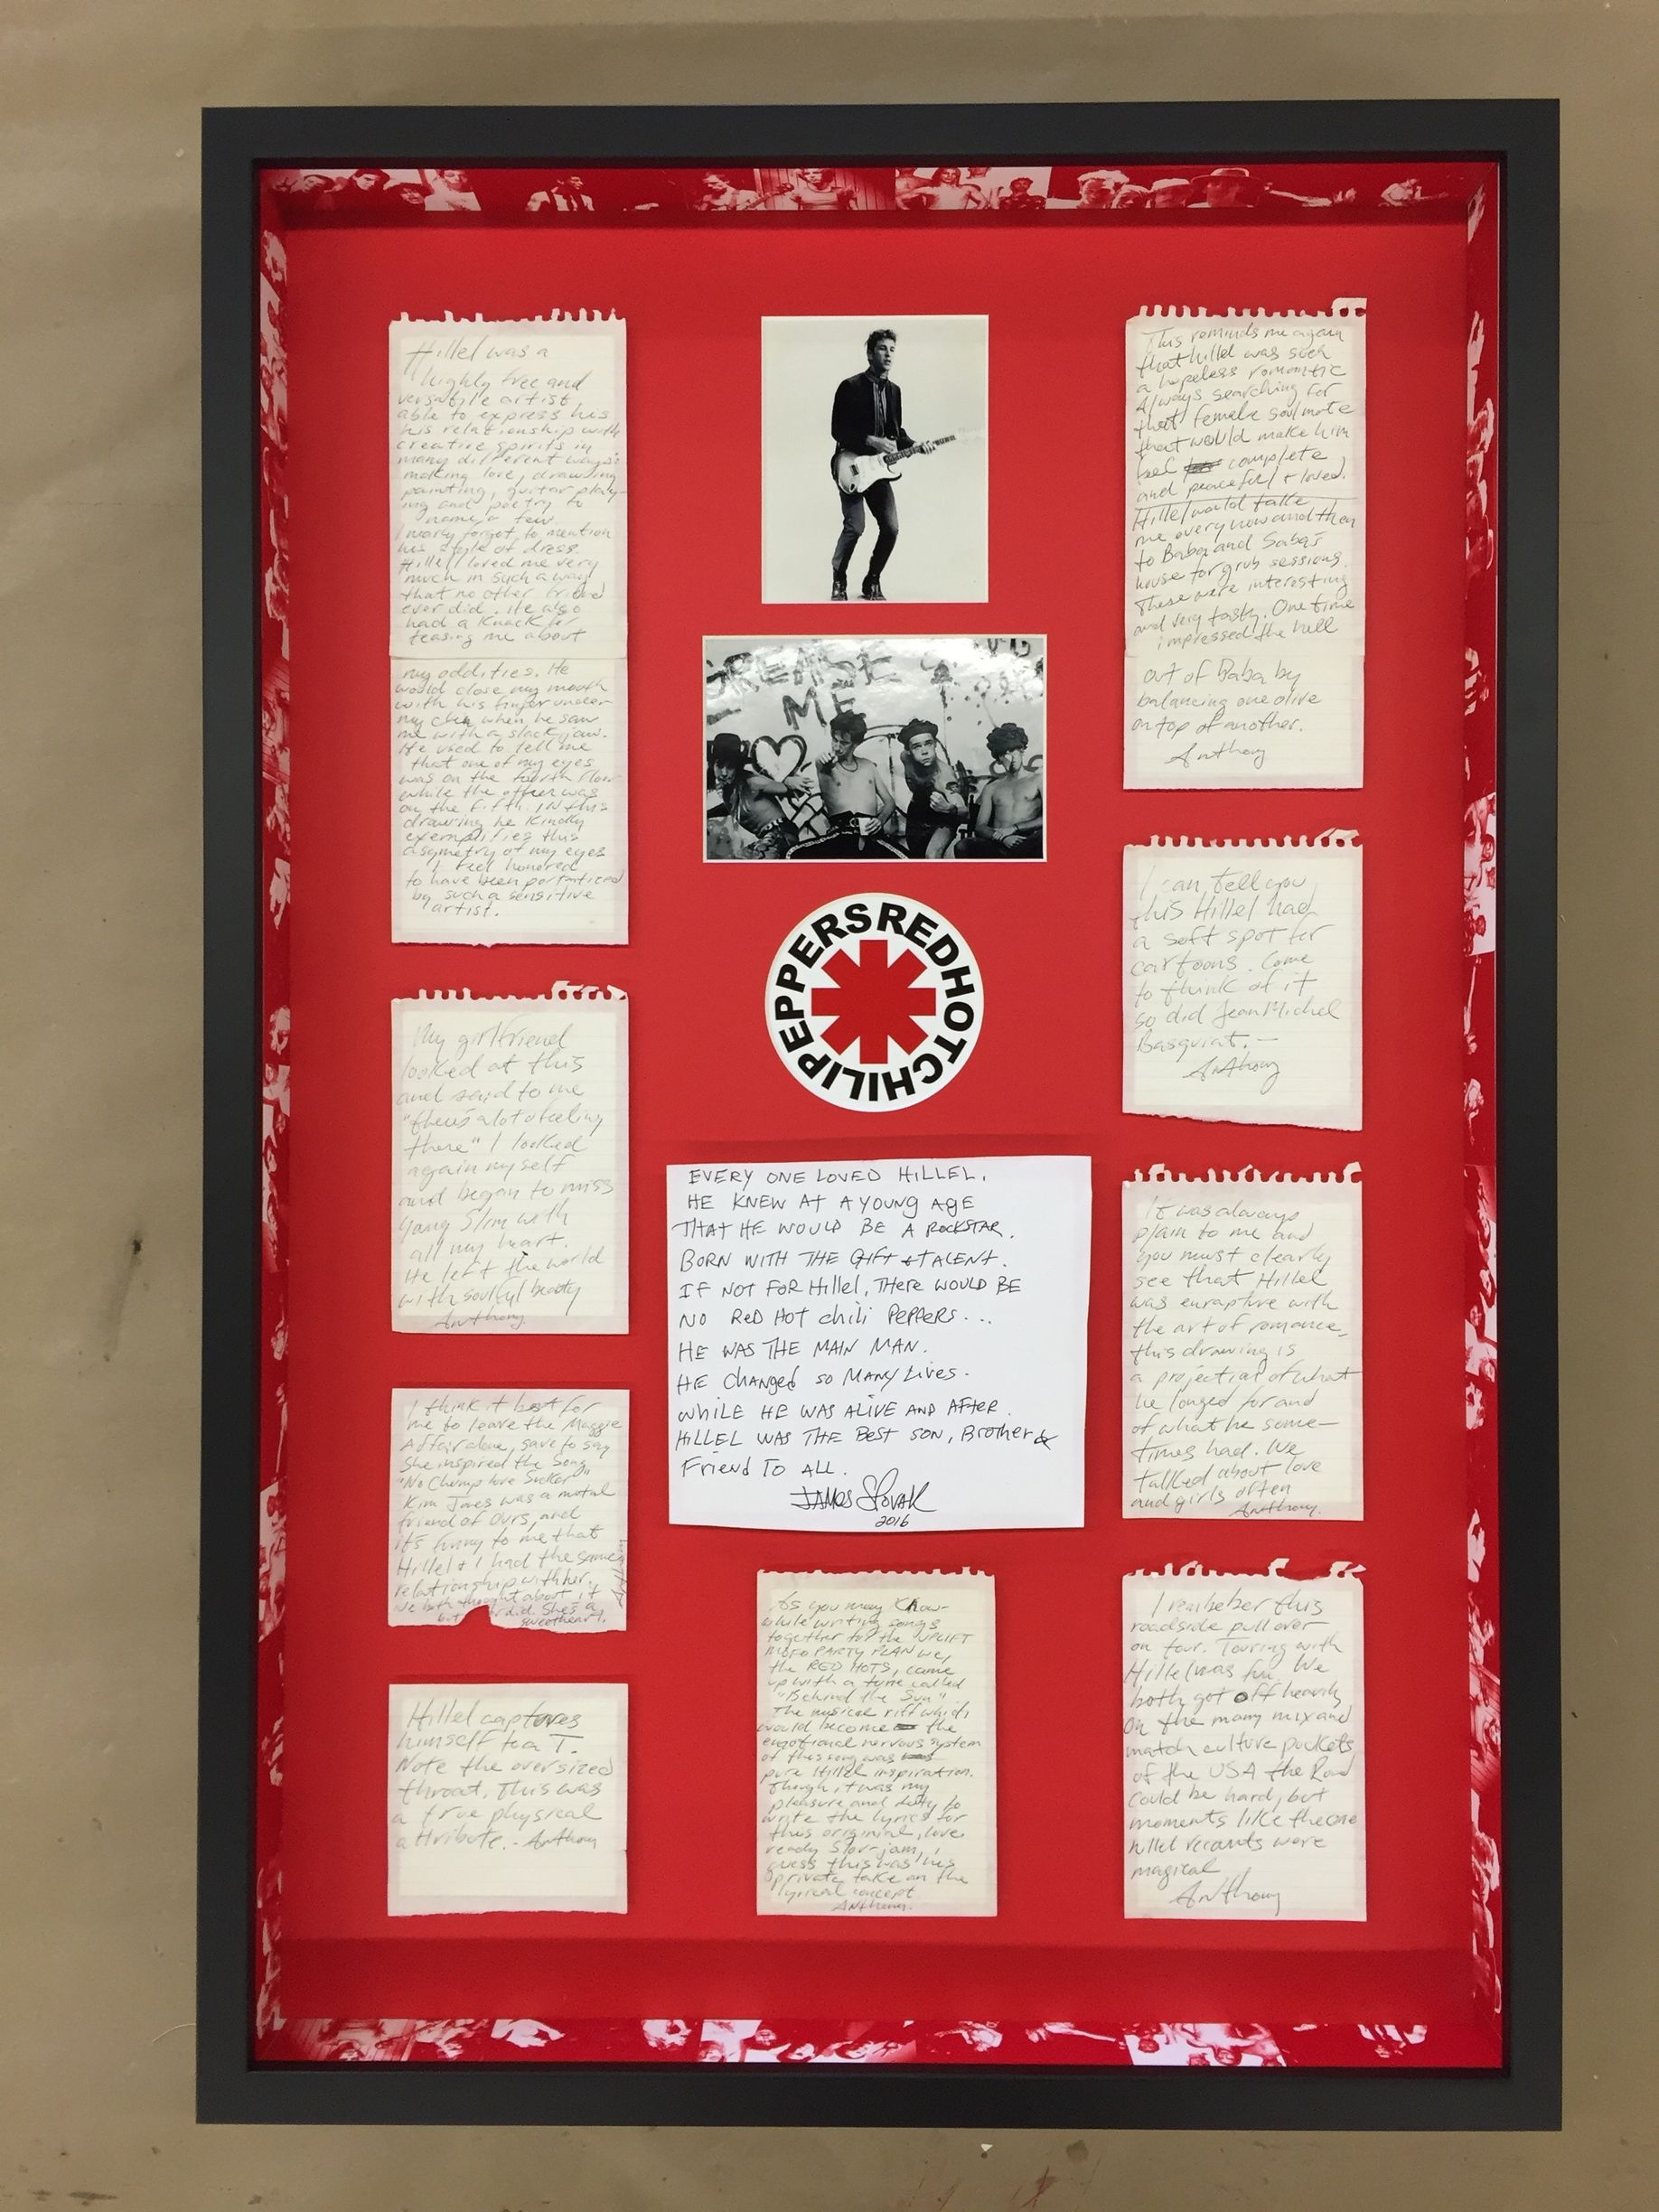 Hillel was a
highly free and
versatile artist,
able to express his
his relationship with
creative spirits in
many different ways:
making love, drawing
painting, guitar play-
ing and poetry to
name a few.
I nearly forgot to mention
his style of dress.
Hillel loved me very
much in such a way
that no other friend
ever did. He also
had a knack for
teasing me about
my oddities. He
would close my mouth
with his finger under
my chin when he saw
me with a slack jaw.
He used to tell me
that one of my eyes
was on the fourth floor
while the other was
on the fifth. IN this
drawing he kindly
exemplifies this
asymetry of my eyes
I feel honored
to have been
by such a sensitive
artist.
My girlfriend
looked at this
and said to me
"theres a lot of feeling
there" I looked
again myself
and began to miss
Yang Slim with
all my heart.
He left the world
with soulful beauty
Anthony
I think it best for
me to leave the Maggie
Affair alone, save to say
She inspired the song
"No Chump Love Sucker"
Kim Jones was a mutal
friend of ours, and
it's funny to me that
Hillel + I had the same
relationship with her.
We both thought about it
but did. She's a
sweetheart.
Hillel captures
himself to a T.
Note the oversized
throat. This was
a true physical
attribute. - Anthony
GREASE
ME
RED HOT CHILI PEPPERS
EVERY ONE LOVED HILLEL.
HE KNEW AT A YOUNG AGE
THAT HE WOULD BE A ROCKSTAR.
BORN WITH THE GIFT + TALENT.
IF NOT FOR Hillel, THERE WOULD BE
NO RED HOT CHILI PEPPERS...
HE WAS THE MAIN MAN.
HE CHANGED SO MANY LIVES.
WHILE HE WAS ALIVE AND AFTER.
HILLEL WAS THE BEST SON, Brother &
Friend TO ALL.
JAMES SLOVAK
2016
As you may know
while writing songs
together for the UPLIFT
MOFO PARTY PLAN we,
the RED HOTS, came
up with a tune called
"Behind the Sun".
The musical riff which
would become the
emotional nervous system
of this song was
pure Hillel inspiration.
Though, it was my
pleasure and duty to
write the lyrics for
this original, love
ready Slow-jam, I
guess this was his
private take on the
lyrical concept
Anthony.
This reminds me again
that hillel was such
a hopeless romantic
Always searching for
that female soulmate
that would make him
feel complete
and peaceful + loved.
Hillel would take
me every now and then
to Baba and Saba's
house for grub sessions.
These were interesting
and very tasty. One time
i impressed the hell
out of Baba by
balancing one olive
on top of another.
Anthony
I can tell you
this Hillel had
a soft spot for
cartoons. Come
to think of it
so did Jean Michel
Basquiat. —
Anthony
It was always
plain to me and
you must clearly
see that Hillel
was enrapture with
the art of romance,
this drawing is
a projection of what
he longed for and
of what he some-
times had. We
talked about love
and girls often
Anthony.
I remeber this
roadside pull over
on tour. Touring with
Hillel was fun. We
both got off heavily
on the many mix and
match culture pockets
of the USA the Road
could be hard, but
moments like the one
hillel recants were
magical
Anthony